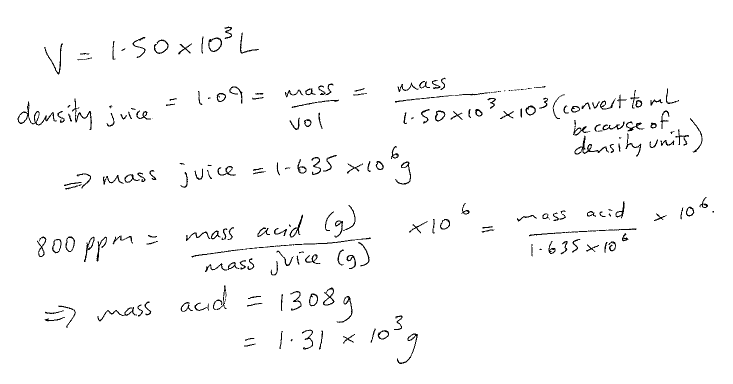 V = 1.50 × 10³ L
density juice = 1.09 = mass/vol = mass/(1.50 × 10³ × 10³) (convert to mL because of density units)
⇒ mass juice = 1.635 × 10⁶ g
800 ppm = mass acid (g)/mass juice (g) × 10⁶ = mass acid/(1.635 × 10⁶) × 10⁶.
⇒ mass acid = 1308 g
= 1.31 × 10³ g